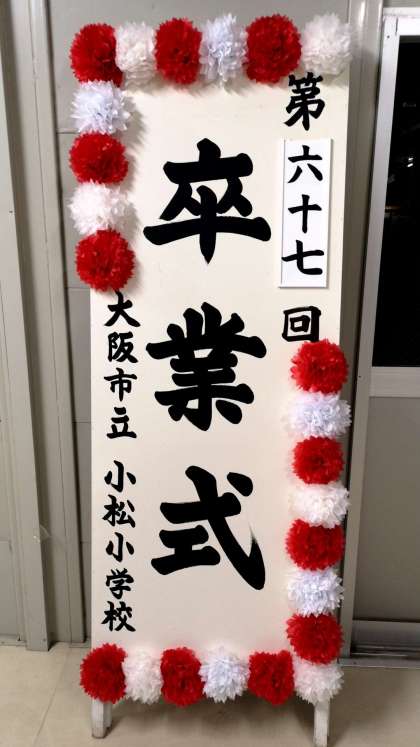 第六十七回
卒業式
大阪市立 小松小学校